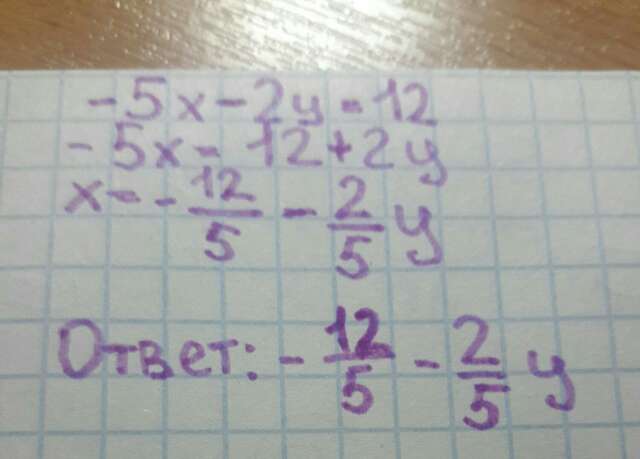 -5x-2y=12
-5x=12+2y
x=-12/5-2/5y
Ответ:-12/5-2/5y